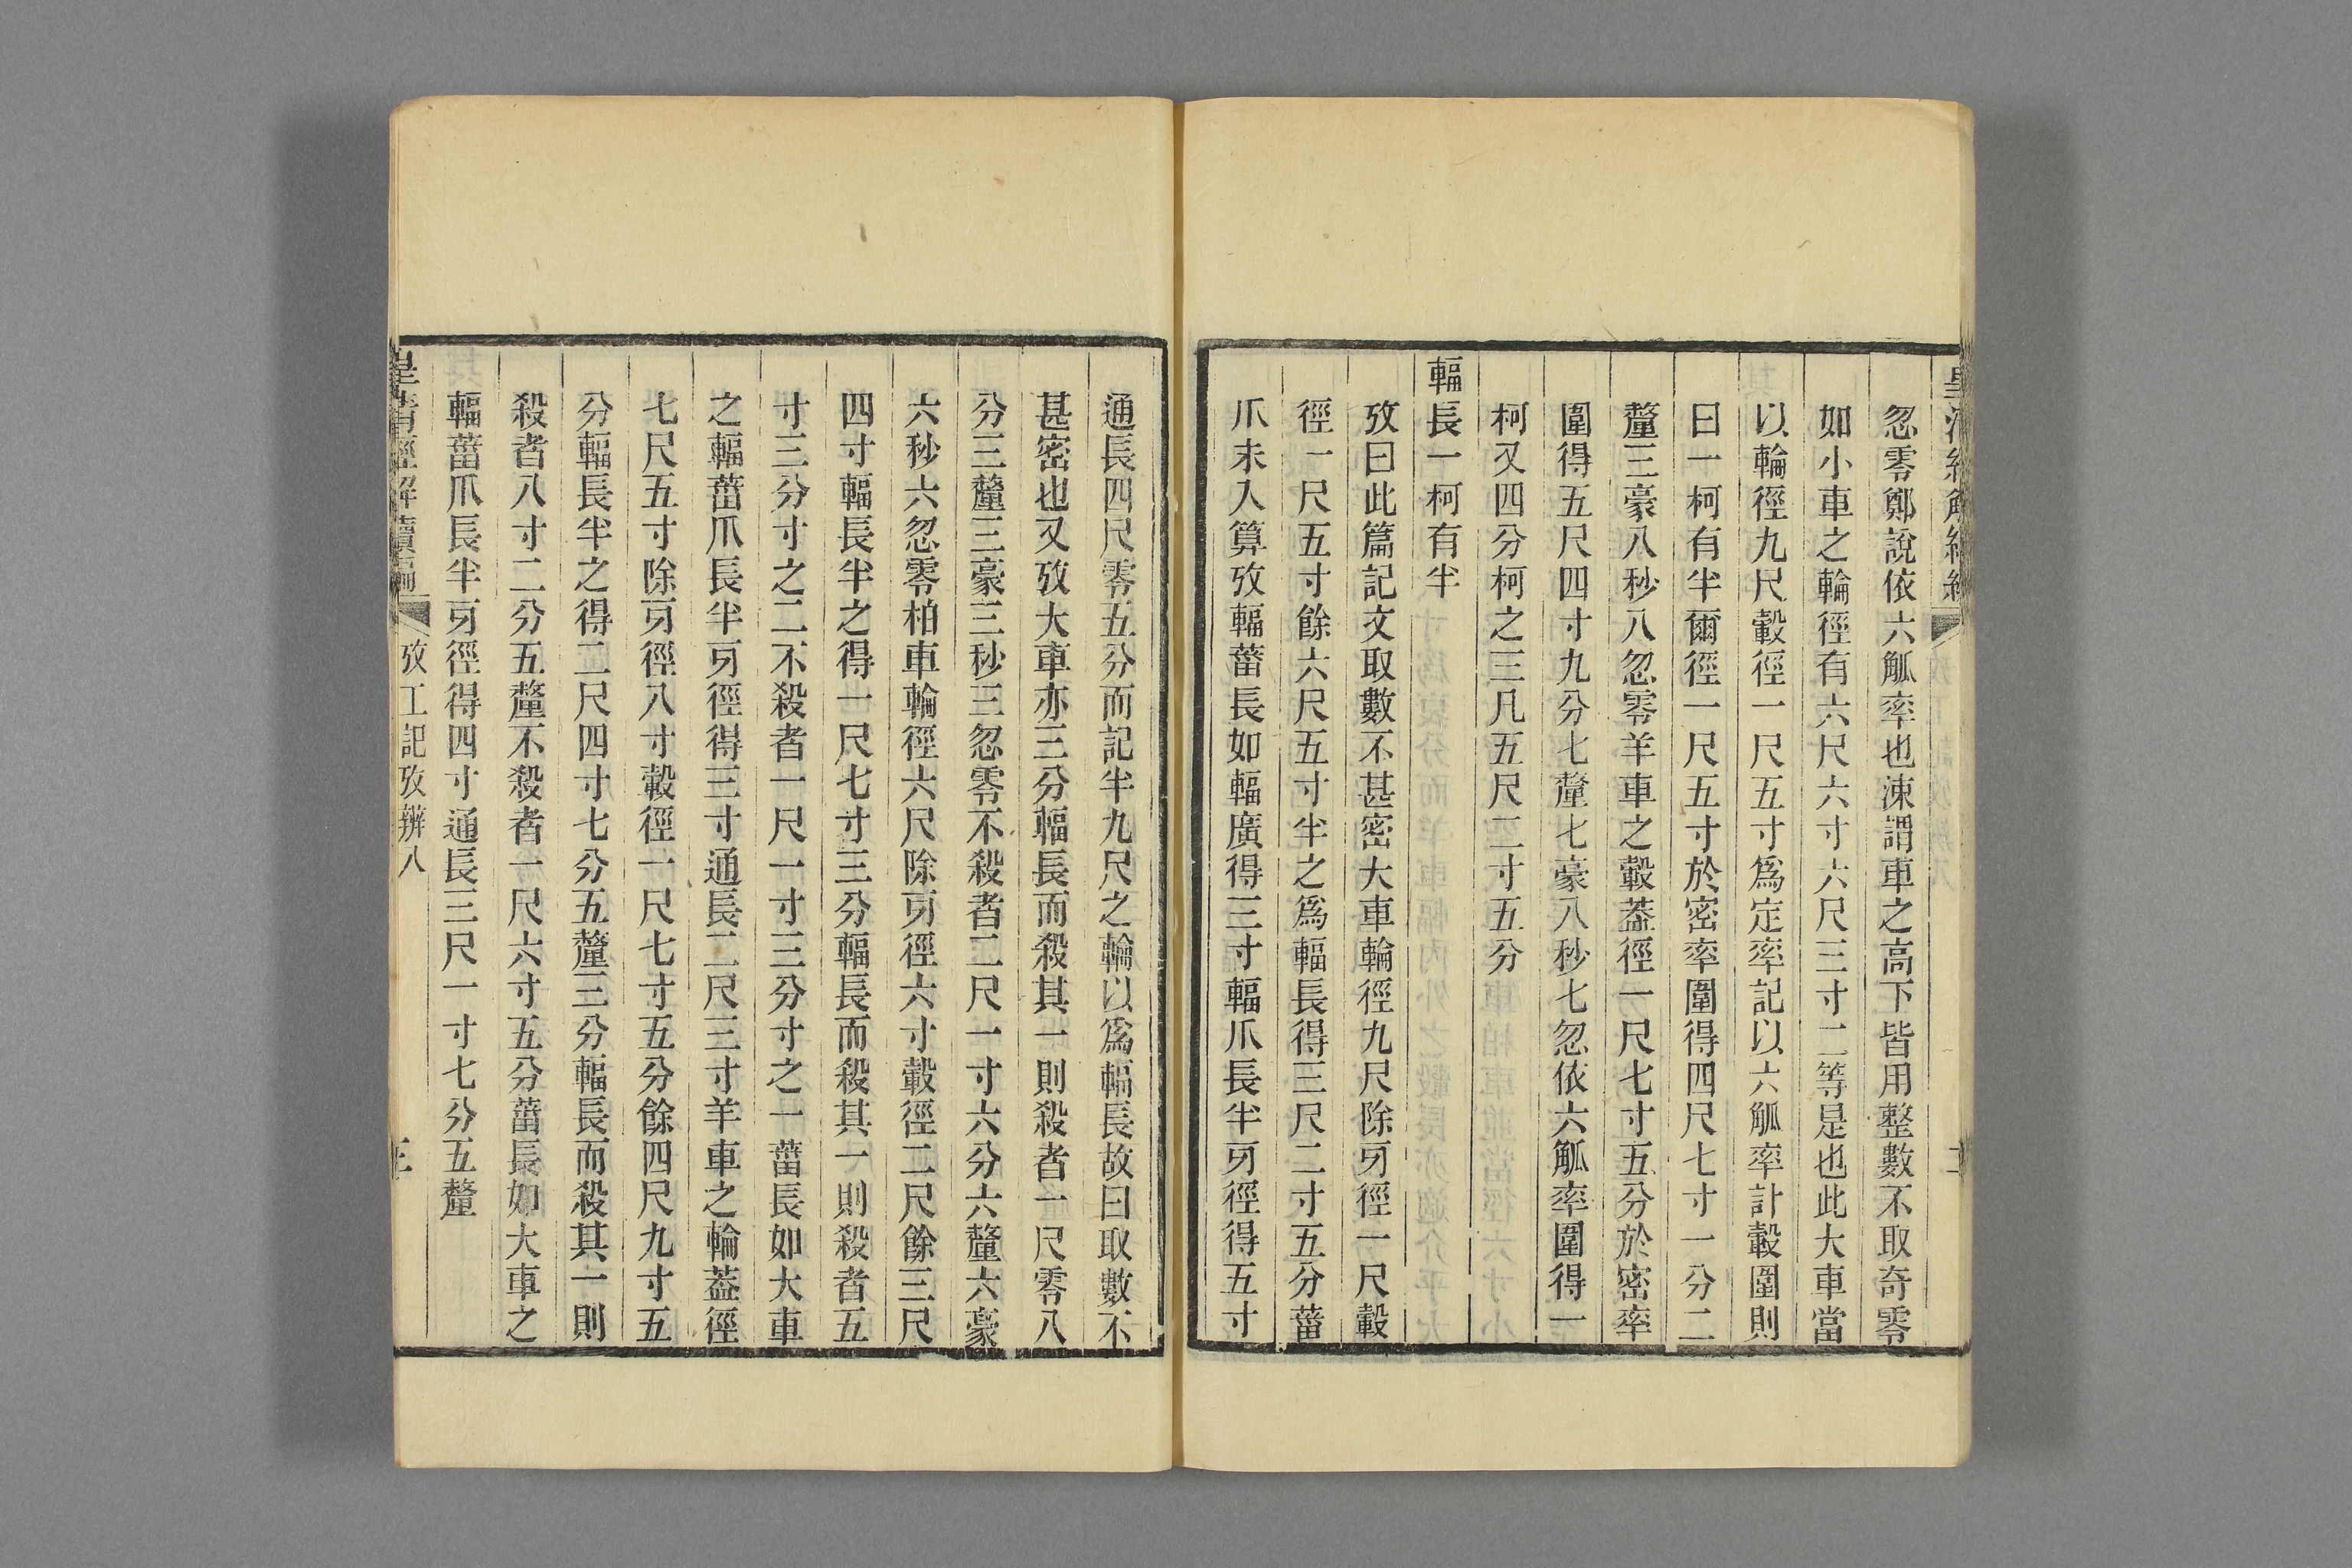 忽零鄭說依六觚率也涷謂車之高下皆用整數不取奇零
如小車之輪徑有六尺六寸六尺三寸二等是也此大車當
以輪徑九尺轂徑一尺五寸爲定率記以六觚率計轂圍則
曰一柯有半爾徑一尺五寸於密率圍得四尺七寸一分二
釐三豪八秒八忽零羊車之轂葢徑一尺七寸五分於密率
圍得五尺四寸九分七釐七豪八秒七忽依六觚率圍得一
柯又四分柯之三凡五尺二寸五分
輻長一柯有半
攷曰此篇記文取數不甚密大車輪徑九尺除牙徑一尺轂
徑一尺五寸餘六尺五寸半之爲輻長得三尺二寸五分菑
爪未入算攷輻菑長如輻廣得三寸輻爪長半牙徑得五寸
通長四尺零五分而記半九尺之輪以爲輻長故曰取數不
甚密也又攷大車亦三分輻長而殺其一則殺者一尺零八
分三釐三豪三秒三忽零不殺者二尺一寸六分六釐六豪
六秒六忽零柏車輪徑六尺除牙徑六寸轂徑二尺餘三尺
四寸輻長半之得一尺七寸三分輻長而殺其一則殺者五
寸三分寸之二不殺者一尺一寸三分寸之一菑長如大車
之輻菑爪長半牙徑得三寸通長二尺三寸羊車之輪葢徑
七尺五寸除牙徑八寸轂徑一尺七寸五分餘四尺九寸五
分輻長半之得二尺四寸七分五釐三分輻長而殺其一則
殺者八寸二分五釐不殺者一尺六寸五分菑長如大車之
輻菑爪長半牙徑得四寸通長三尺一寸七分五釐
皇清經解續編
攷工記攷辨八
三